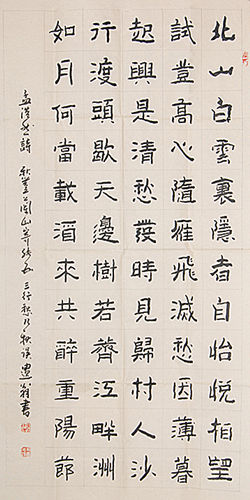 北山白雲裏隱者自怡悅相望
試登高心隨雁飛滅愁因薄暮
起興是清愁發時見歸村人沙
行渡頭歇天邊樹若薺江畔洲
如月何當載酒來共醉重陽節
孟浩然詩 秋登蘭山寄張五 三行愁乃秋誤 翁書